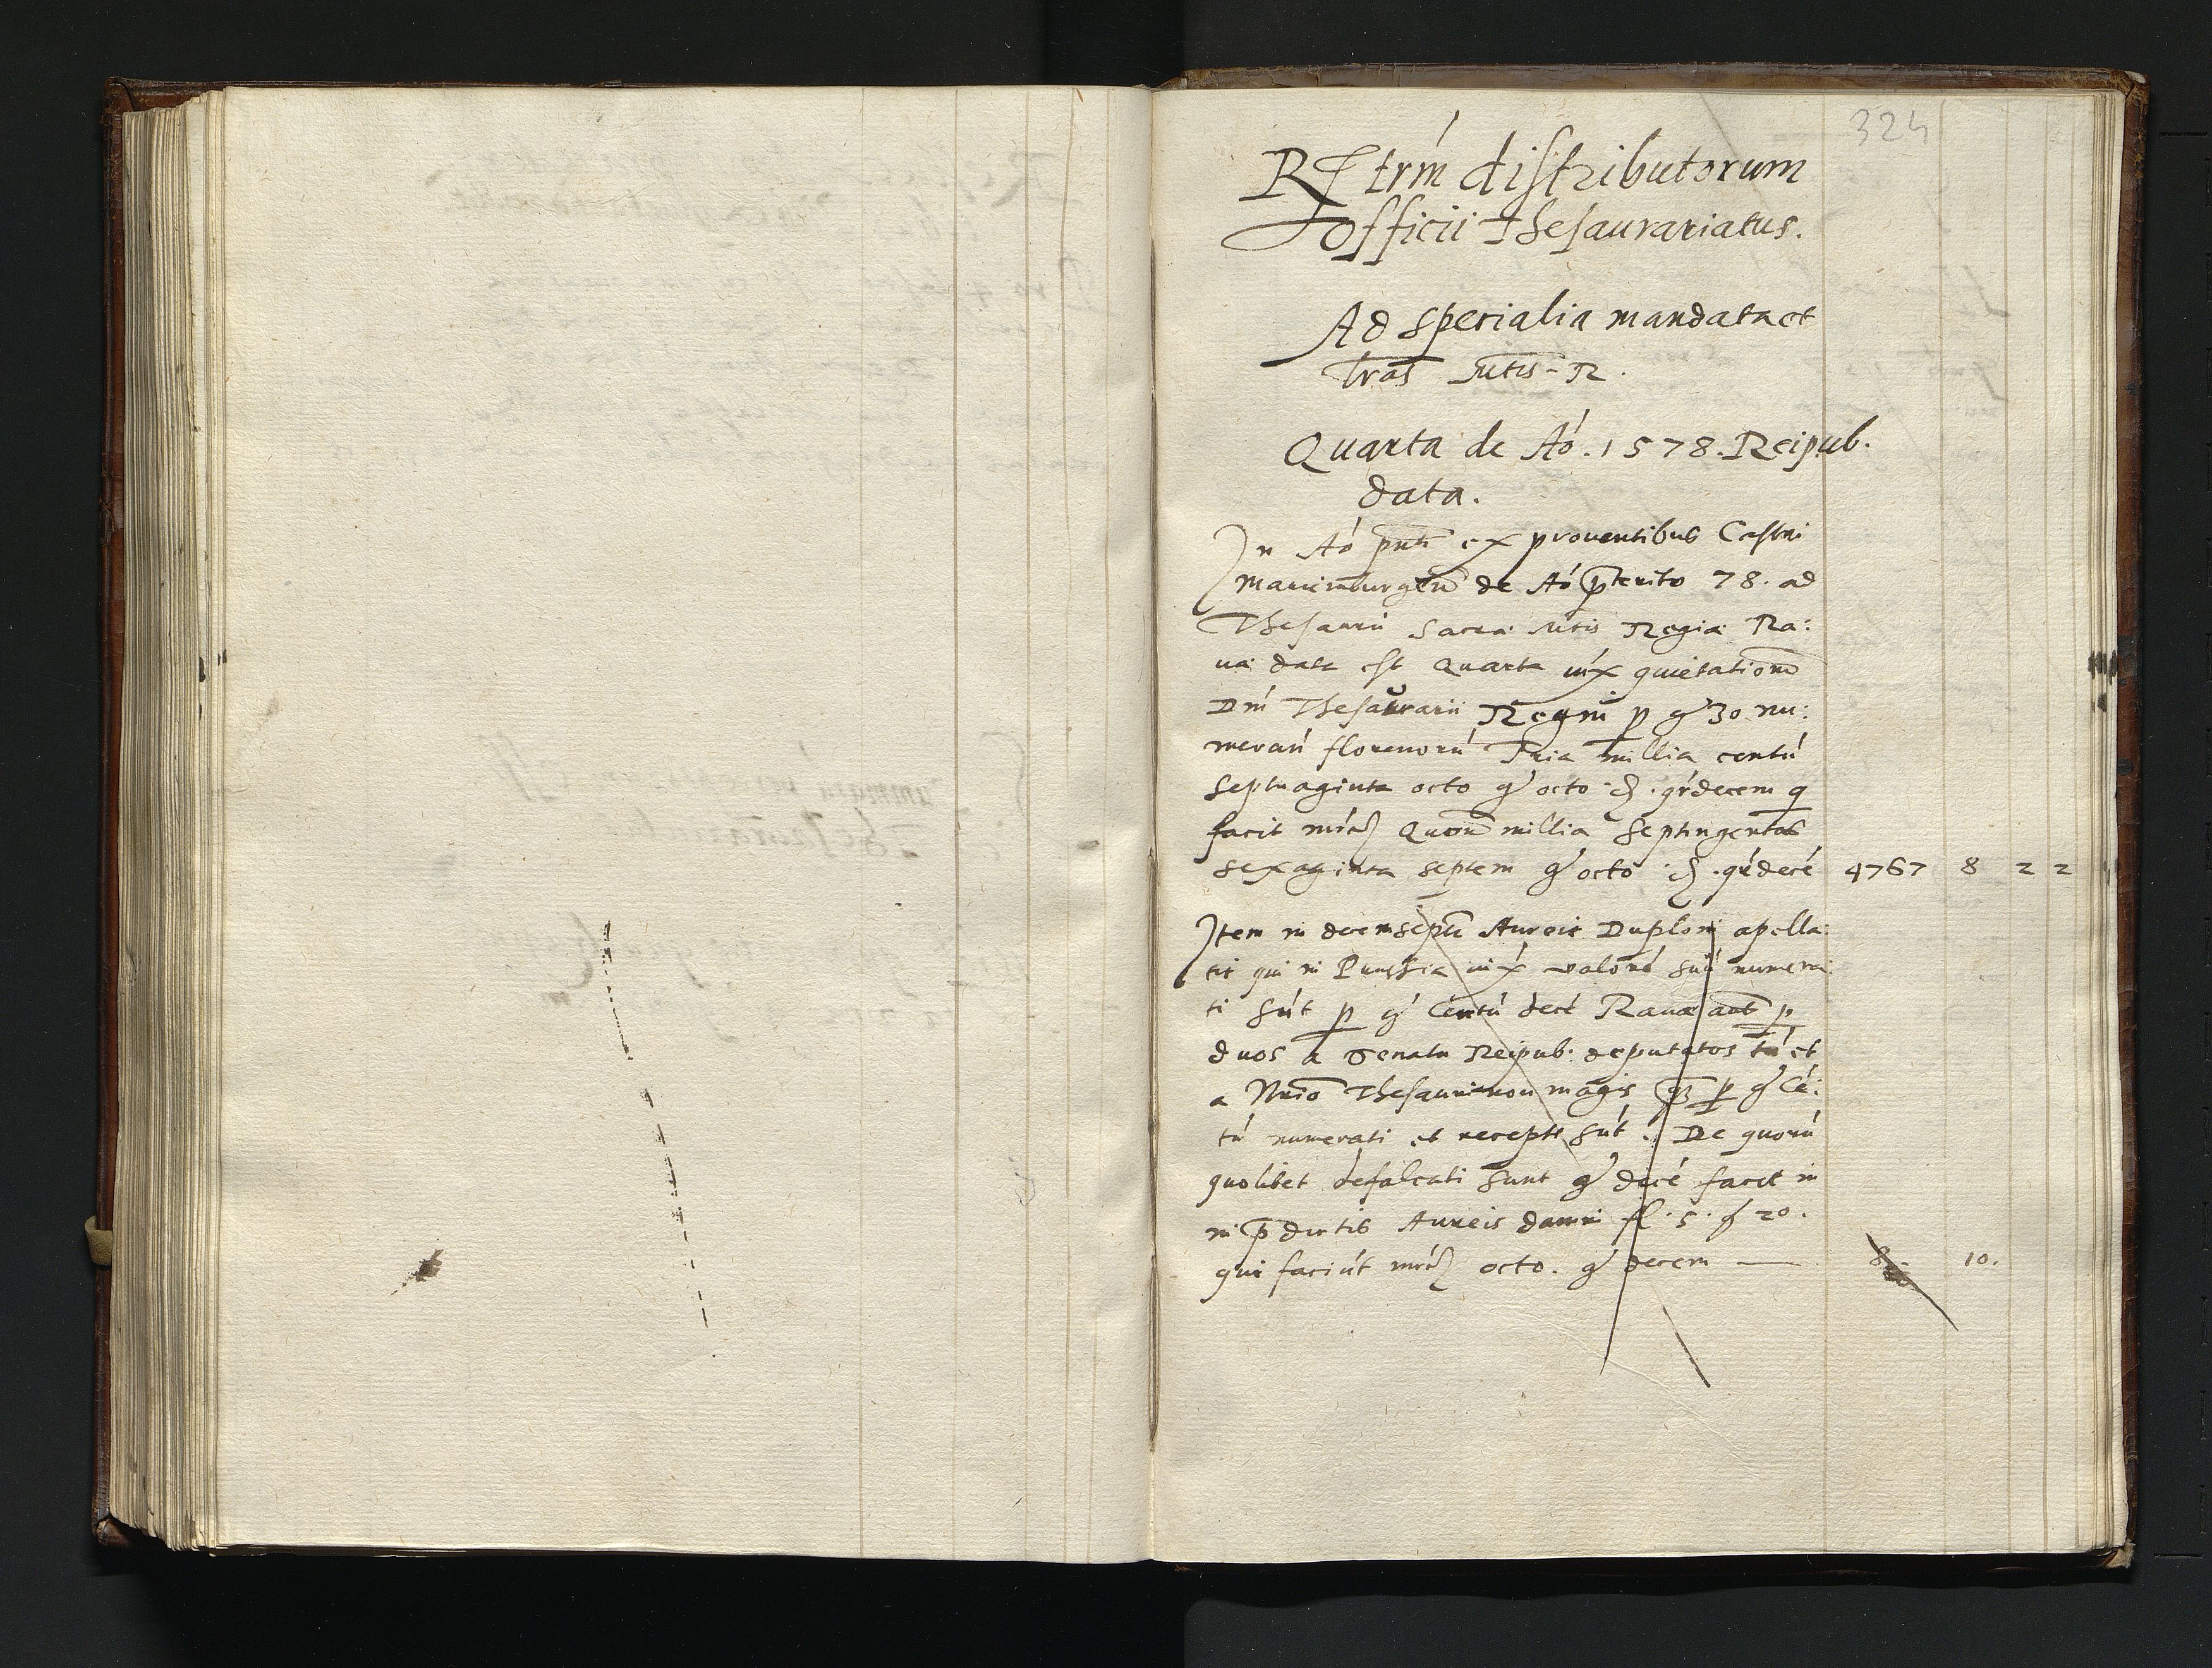 324
Rgtrm̄ distributorum
officii Thesaurariatus.
Ad specialia mandata et
Lr̄as Mtis R.
Quarta de Aó. 1578. Reipub.
data.
In Aó pn̄ti ex proventibus Castri
Mariẽburgeñ de Aó p̄terito 78. ad
Thesaurū Sacræ Mtis Regiæ Ra:
uæ data est Quarta iux quietationē
Dnī Thesaurarii Regni p gͬ 30 nu:
merari florenorū Tria millia centū
Septuaginta octo gͬ octo ꝺ. qrdecem q
facit mrc Quor̄ millia Septingentas
sexaginta septem gͬ octo ꝺ. qrdecē 4767 8 2 2
Item in decemseptē Aureis Duploñ apella:
tis qui in Prussia iux valorē suū numera:
ti sūt p gͬ Centū decē Rauæ aut p
duos a Senatu Reipub. deputatos tū et
a Mrio Thesauri non magis q̄ p gͬ Cē:
tū numerati et recepti sūt. De quorū
quolibet defalcati sunt gͬ decē facit in
in p̄dictis Aureis damni fl. 5. gͬ 20.
qui faciūt mrc octo. gͬ decem — 8. 10.